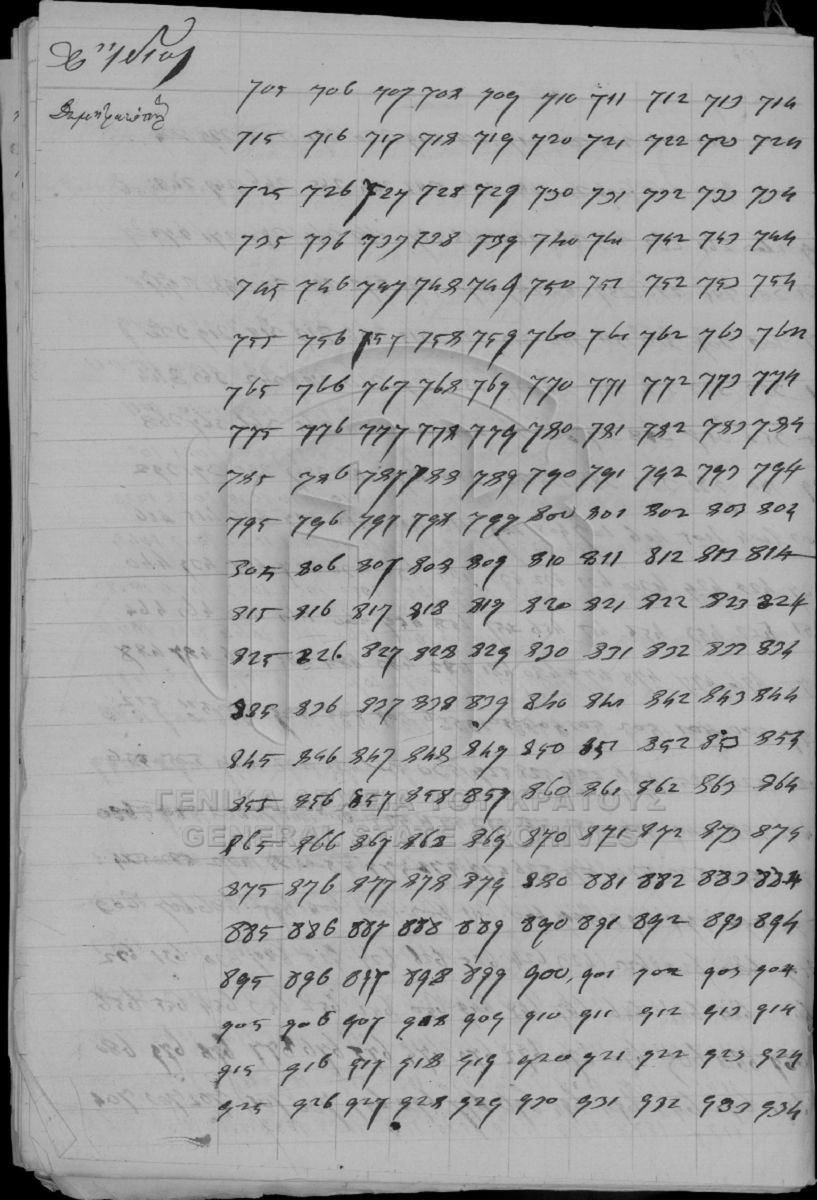 705 706 707 708 709 710 711 712 713 714
715 716 717 718 719 720 721 722 723 724
725 726 727 728 729 730 731 732 733 734
735 736 737 738 739 740 741 742 743 744
745 746 747 748 749 750 751 752 753 754
755 756 757 758 759 760 761 762 763 764
765 766 767 768 769 770 771 772 773 774
775 776 777 778 779 780 781 782 783 784
785 786 787 788 789 790 791 792 793 794
795 796 797 798 799 800 801 802 803 804
805 806 807 808 809 810 811 812 813 814
815 816 817 818 819 820 821 822 823 824
825 826 827 828 829 830 831 832 833 834
835 836 837 838 839 840 841 842 843 844
845 846 847 848 849 850 851 852 853 854
855 856 857 858 859 860 861 862 863 864
ΓΕΝΙΚΑ ΑΡΧΕΙΑ ΤΟΥ ΚΡΑΤΟΥΣ
GENERAL STATE ARCHIVES
865 866 867 868 869 870 871 872 873 874
875 876 877 878 879 880 881 882 883 884
885 886 887 888 889 890 891 892 893 894
895 896 897 898 899 900 901 902 903 904
905 906 907 908 909 910 911 912 913 914
915 916 917 918 919 920 921 922 923 924
925 926 927 928 929 930 931 932 933 934